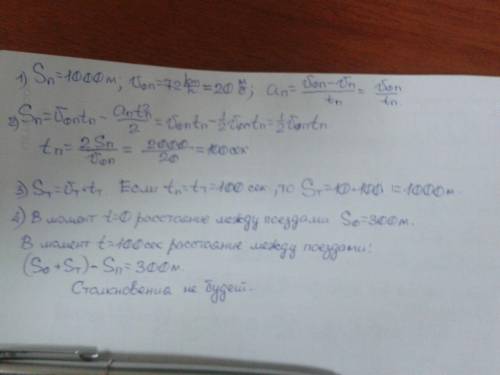 1) Sп=1000м; v₀п=72 км/ч=20 м/с; aп=(v₀п-vп)/tп=v₀п/tп
2) Sп=v₀пtп-aпtп²/2=v₀пtп-½v₀пtп=½v₀пtп
tп=2Sп/v₀п=2000/20=100сек
3) Sт=vт·tт Если tп=tт=100сек, то Sт=10·100=1000м.
4) В момент t=0 расстояние между поездами S₀=300м.
В момент t=100сек расстояние между поездами:
(S₀+Sт)-Sп=300м.
Столкновения не будет.